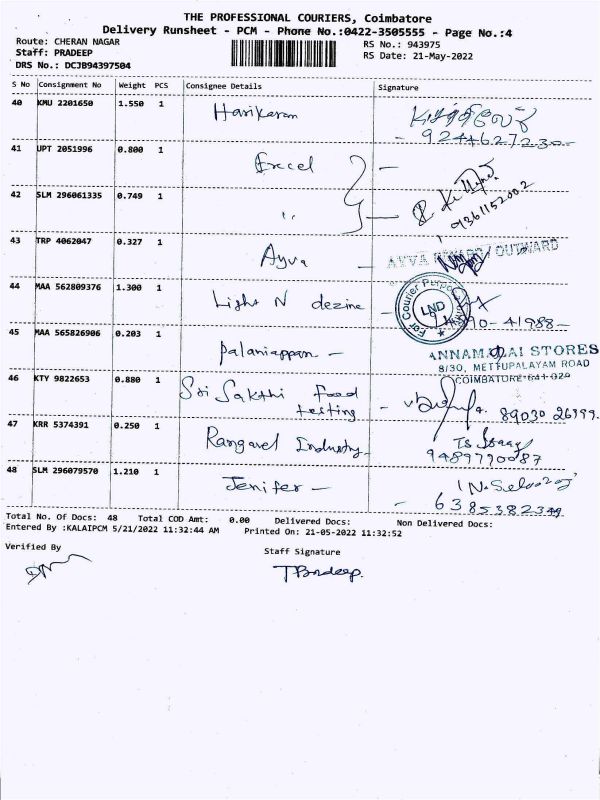 THE PROFESSIONAL COURIERS, Coimbatore
Delivery Runsheet - PCM - Phone No.:0422-3505555 - Page No.:4
Route: CHERAN NAGAR
RS No.: 943975
Staff: PRADEEP
RS Date: 21-May-2022
DRS No.: DCJB94397504
S No Consignment No Weight PCS Consignee Details Signature
40 KMU 2201650 1.550 1 Harikaran
9244627230
41 UPT 2051996 0.800 1 Excel
42 SLM 296061335 0.749 1 ,, 9361152002
43 TRP 4062047 0.327 1 Ayva - AYVA INWARD / OUTWARD
44 MAA 562809376 1.300 1 Light N dezine
For Courier Purpose LND
90-41988
45 MAA 565826906 0.203 1 palaniappan -
ANNAMALAI STORES
8/30, METTUPALAYAM ROAD
COIMBATORE-641 029
46 KTY 9822653 0.880 1 Sri Sakthi food
testing - 89030 26999
47 KRR 5374391 0.250 1 Rangavel Industry
9489790087
48 SLM 296079570 1.210 1 Jenifer -
6385382349
Total No. Of Docs: 48 Total COD Amt: 0.00 Delivered Docs: Non Delivered Docs:
Entered By :KALAIPCM 5/21/2022 11:32:44 AM Printed On: 21-05-2022 11:32:52
Verified By
Staff Signature
T Pradeep.